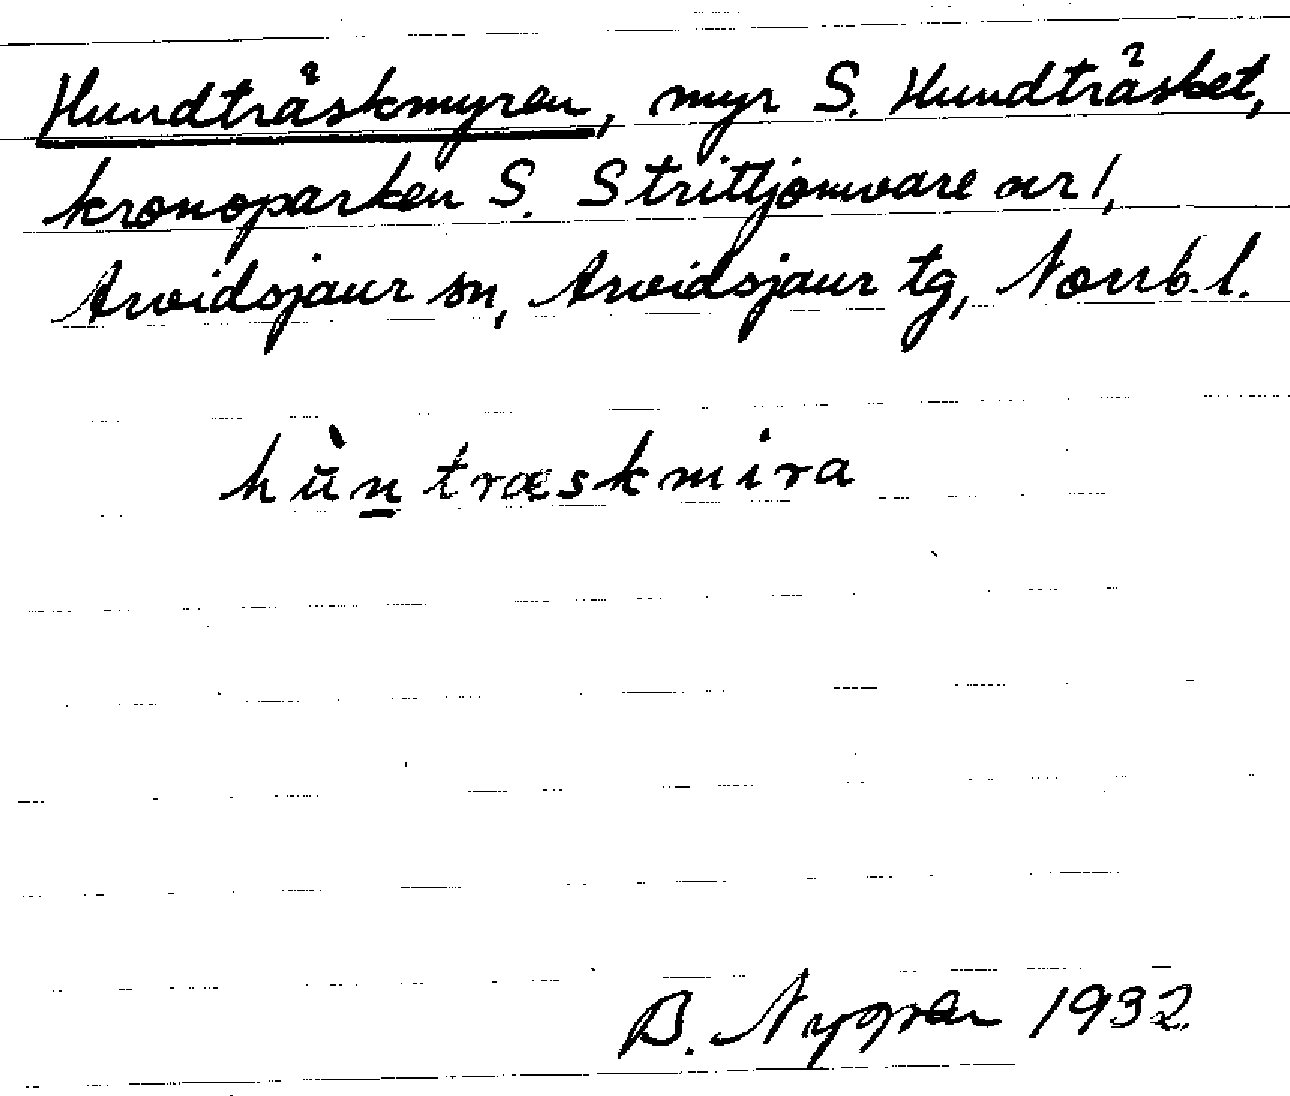 Hundträskmyren, myr S. Hundträsket,
kronoparken S. Strittjomvare nr 1,
Arvidsjaur sn, Arvidsjaur tg, Norrb. l.
hùn̲træskmira
B. Nygren 1932.